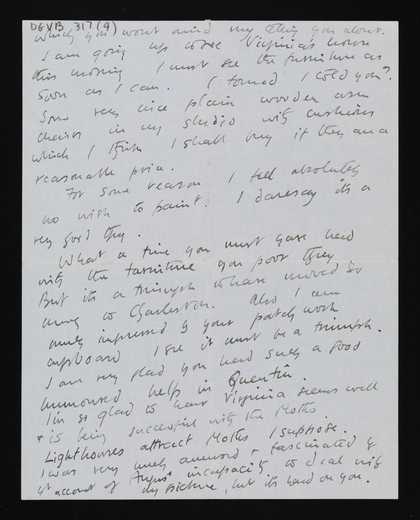 DGVB 317(9)
which you wont mind my telling you about.
I am going up to see Virginia's house
this morning I must see the furniture as
soon as I can. I found I told you?
some very nice plain wooden arm
chairs in my studio with cushions
which I think I shall buy if they are a
reasonable price.
For some reason I feel absolutely
no wish to paint. I daresay its a
very good thing.
What a time you must have had
with the furniture you poor thing
But its a triumph to have moved so
many to Charleston. Also I am
much impressed by your patch work
cupboard I see it must be a triumph.
I am very glad you had such a good
humoured help in Quentin.
I'm so glad to hear Virginia seems well
& is being successful with the Moths
Lighthouses attract Moths I suppose.
I was very much amused & fascinated by
yr account of Angus' incapacity to deal with
my picture, but its hard on you.